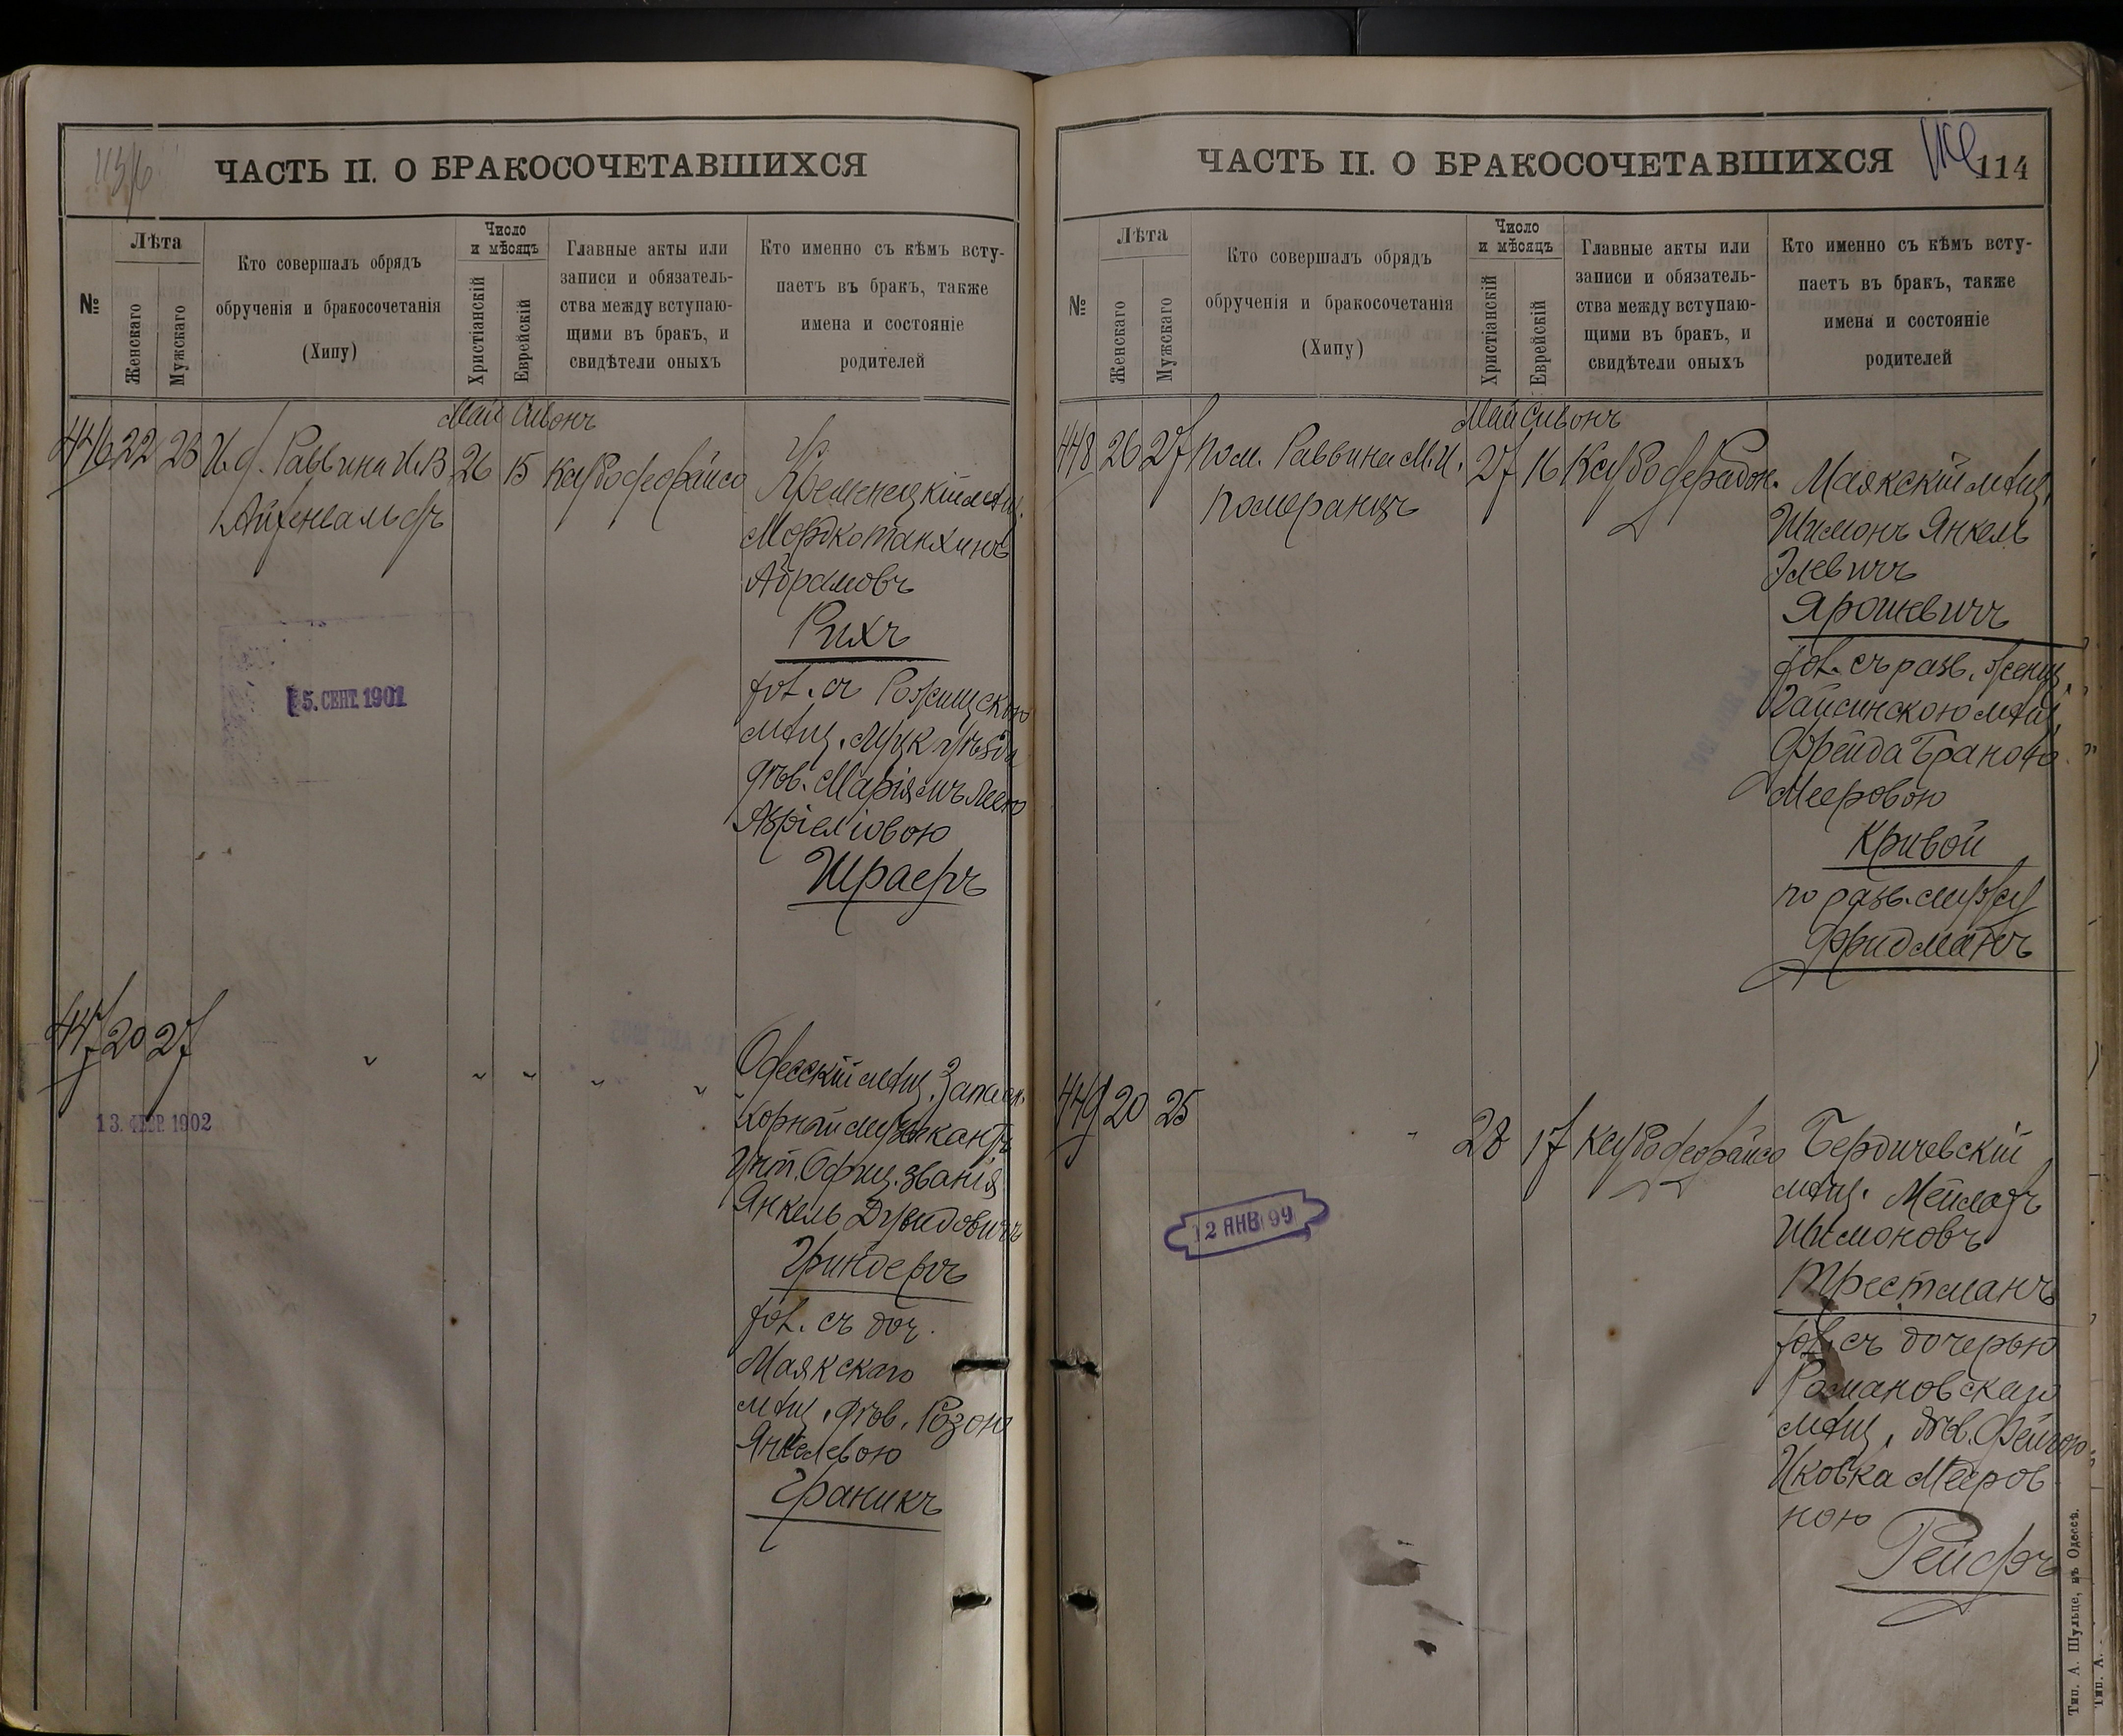 ЧАСТЬ II. О БРАКОСОЧЕТАВШИХСЯ
№
Лѣта
Женскаго
Мужскаго
Кто совершалъ обрядъ
обрученія и бракосочетанія
(Хипу)
Число
и мѣсяцъ
Христіанскій
Еврейскій
Главные акты или
записи и обязатель-
ства между вступаю-
щими въ бракъ, и
свидѣтели оныхъ
Кто именно съ кѣмъ всту-
паетъ въ бракъ, также
имена и состояніе
родителей
Май Сивонъ
446 22 23 И. д. Раввина 26 15
Айхенвальдъ
Кременецкій мѣщ.
Мордко Танхинъ
Абрамовъ
Рихъ
съ Рожищскою
мѣщ. Луцк уѣзда
дѣв. Маріямъ Леею
Азріеліовою
Шраеръ
15. СЕНТ. 1901
447 20 27 " " " " "
13. ФЕВР. 1902
Одесскій мѣщ. Запасн.
музыкантъ
Унт. Офиц. званія
Янкель Дувидовичъ
Гриндеръ
съ доч.
Маякскаго
мѣщ. дѣв. Розою
Янкелевою
Граникъ
ЧАСТЬ II. О БРАКОСОЧЕТАВШИХСЯ
114
№
Лѣта
Женскаго
Мужскаго
Кто совершалъ обрядъ
обрученія и бракосочетанія
(Хипу)
Число
и мѣсяцъ
Христіанскій
Еврейскій
Главные акты или
записи и обязатель-
ства между вступаю-
щими въ бракъ, и
свидѣтели оныхъ
Кто именно съ кѣмъ всту-
паетъ въ бракъ, также
имена и состояніе
родителей
Май Сивонъ
448 26 27 Пом. Раввина М. И. 27 16
Померанцъ
Маякскій мѣщ.
Шимонъ Янкель
Элевичъ
Ярошевичъ
съ разв. женщ.
Гайсинскою мѣщ.
Фрейда Браною
Мееровою
Кривой
по разв. мужу
Фридманъ
449 20 25 " 28 17
12 ЯНВ 99
Бердичевскій
мѣщ. Мейлахъ
Шимоновъ
Трестманъ
съ дочерью
Романовскаго
мѣщ. дѣв. Фейгою
Ицковка Мееров
ною
Рейфъ
Тип. А. Шульце, въ Одессѣ.